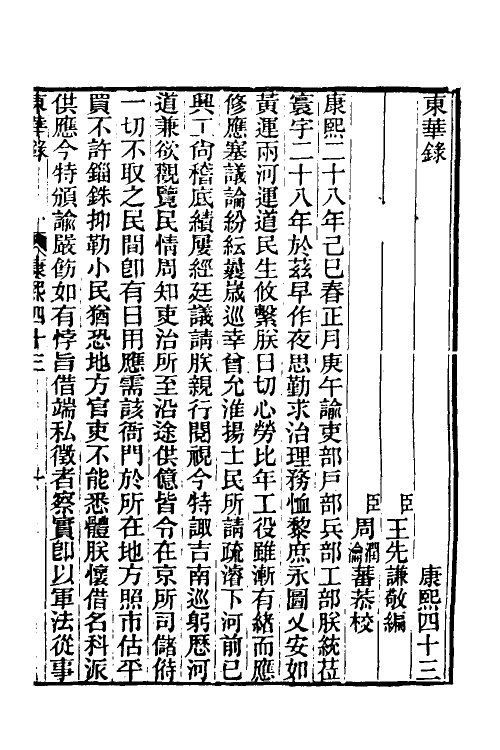 東華錄　康熙四十三
臣王先謙敬編
臣周潤蕃周瀹蕃恭校
康熙二十八年己巳春正月庚午諭吏部戶部兵部工部朕統莅
寰宇二十八年於茲早作夜思勤求治理務恤黎庶永圖乂安如
黃運兩河運道民生攸繫朕日切心勞比年工役雖漸有緒而應
修應塞議論紛紜曩歲巡幸曾允淮揚士民所請疏濬下河前已
興工尙稽底績屢經廷議請朕親行閱視今特諏吉南巡躬歷河
道兼欲觀覽民情周知吏治所至沿途供億皆令在京所司儲偫
一切不取之民間卽有日用應需該衙門於所在地方照市估平
買不許錙銖抑勒小民猶恐地方官吏不能悉體朕懷借名科派
供應今特頒諭嚴飭如有悖旨借端私徵者察實卽以軍法從事
東華錄　康熙四十三　一